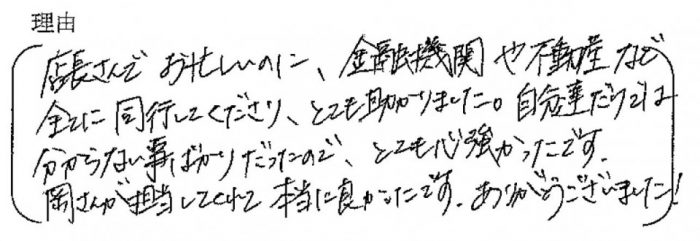 理由
店長さんで お忙しいのに、金融機関 や不動産など
全てに 同行してくださり、とても助かりました。自分達だけでは
分からない事ばかりだったので、とても心強かったです.
岡さんが担当してくれて 本当に良かったです. ありがとうございました!